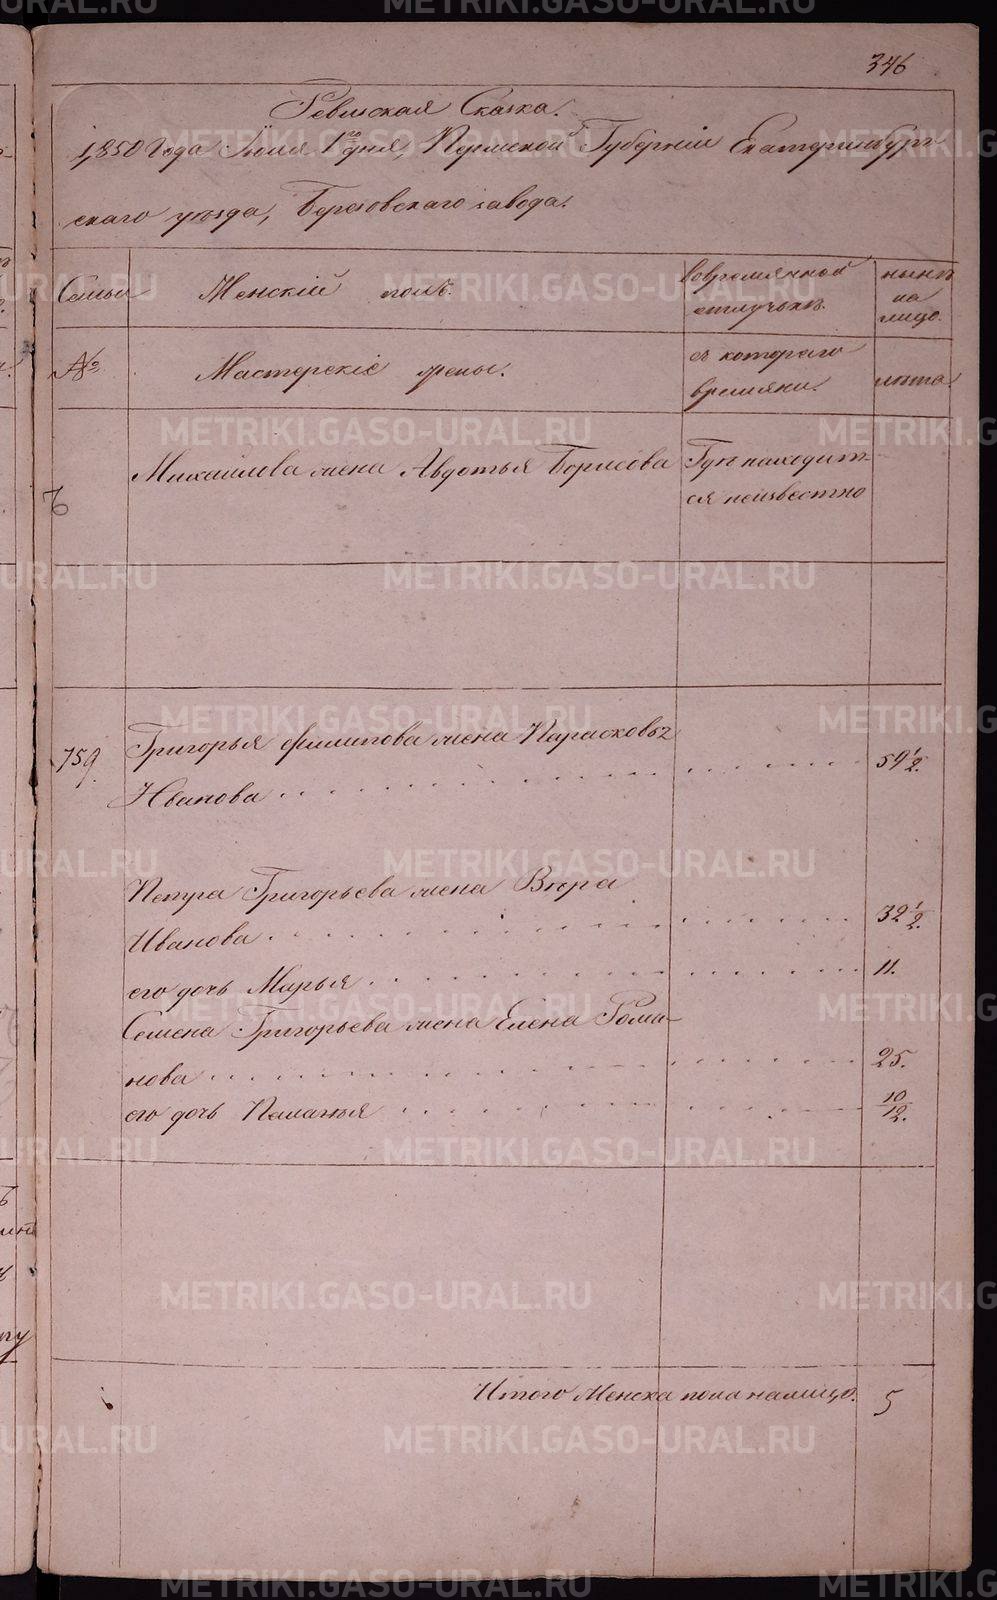 346
Ревизская Сказка.
1850 года Июля 1го дня, Пермской Губерніи Екатеринбург-
скаго уѣзда, Березовскаго завода.
Семьи
Женскій полъ.
вовремянной
отлучкѣ.
нынѣ
на
лицо.
№
Мастерскіе жены.
съ котораго
времяни.
лѣта.
Михаилова жена Авдотья Борисова
Гдѣ находит-
ся неизвестно
759.
Григорья Филипова жена Парасковья
Иванова
54 1/2.
Петра Григорьева жена Вѣра
Иванова
32 1/2.
его дочь Марья
11.
Семена Григорьева жена Елена Рома-
нова
25.
его дочь Пеланья
10/12.
Итого Женска пола налицо.
5
METRIKI.GASO-URAL.RU